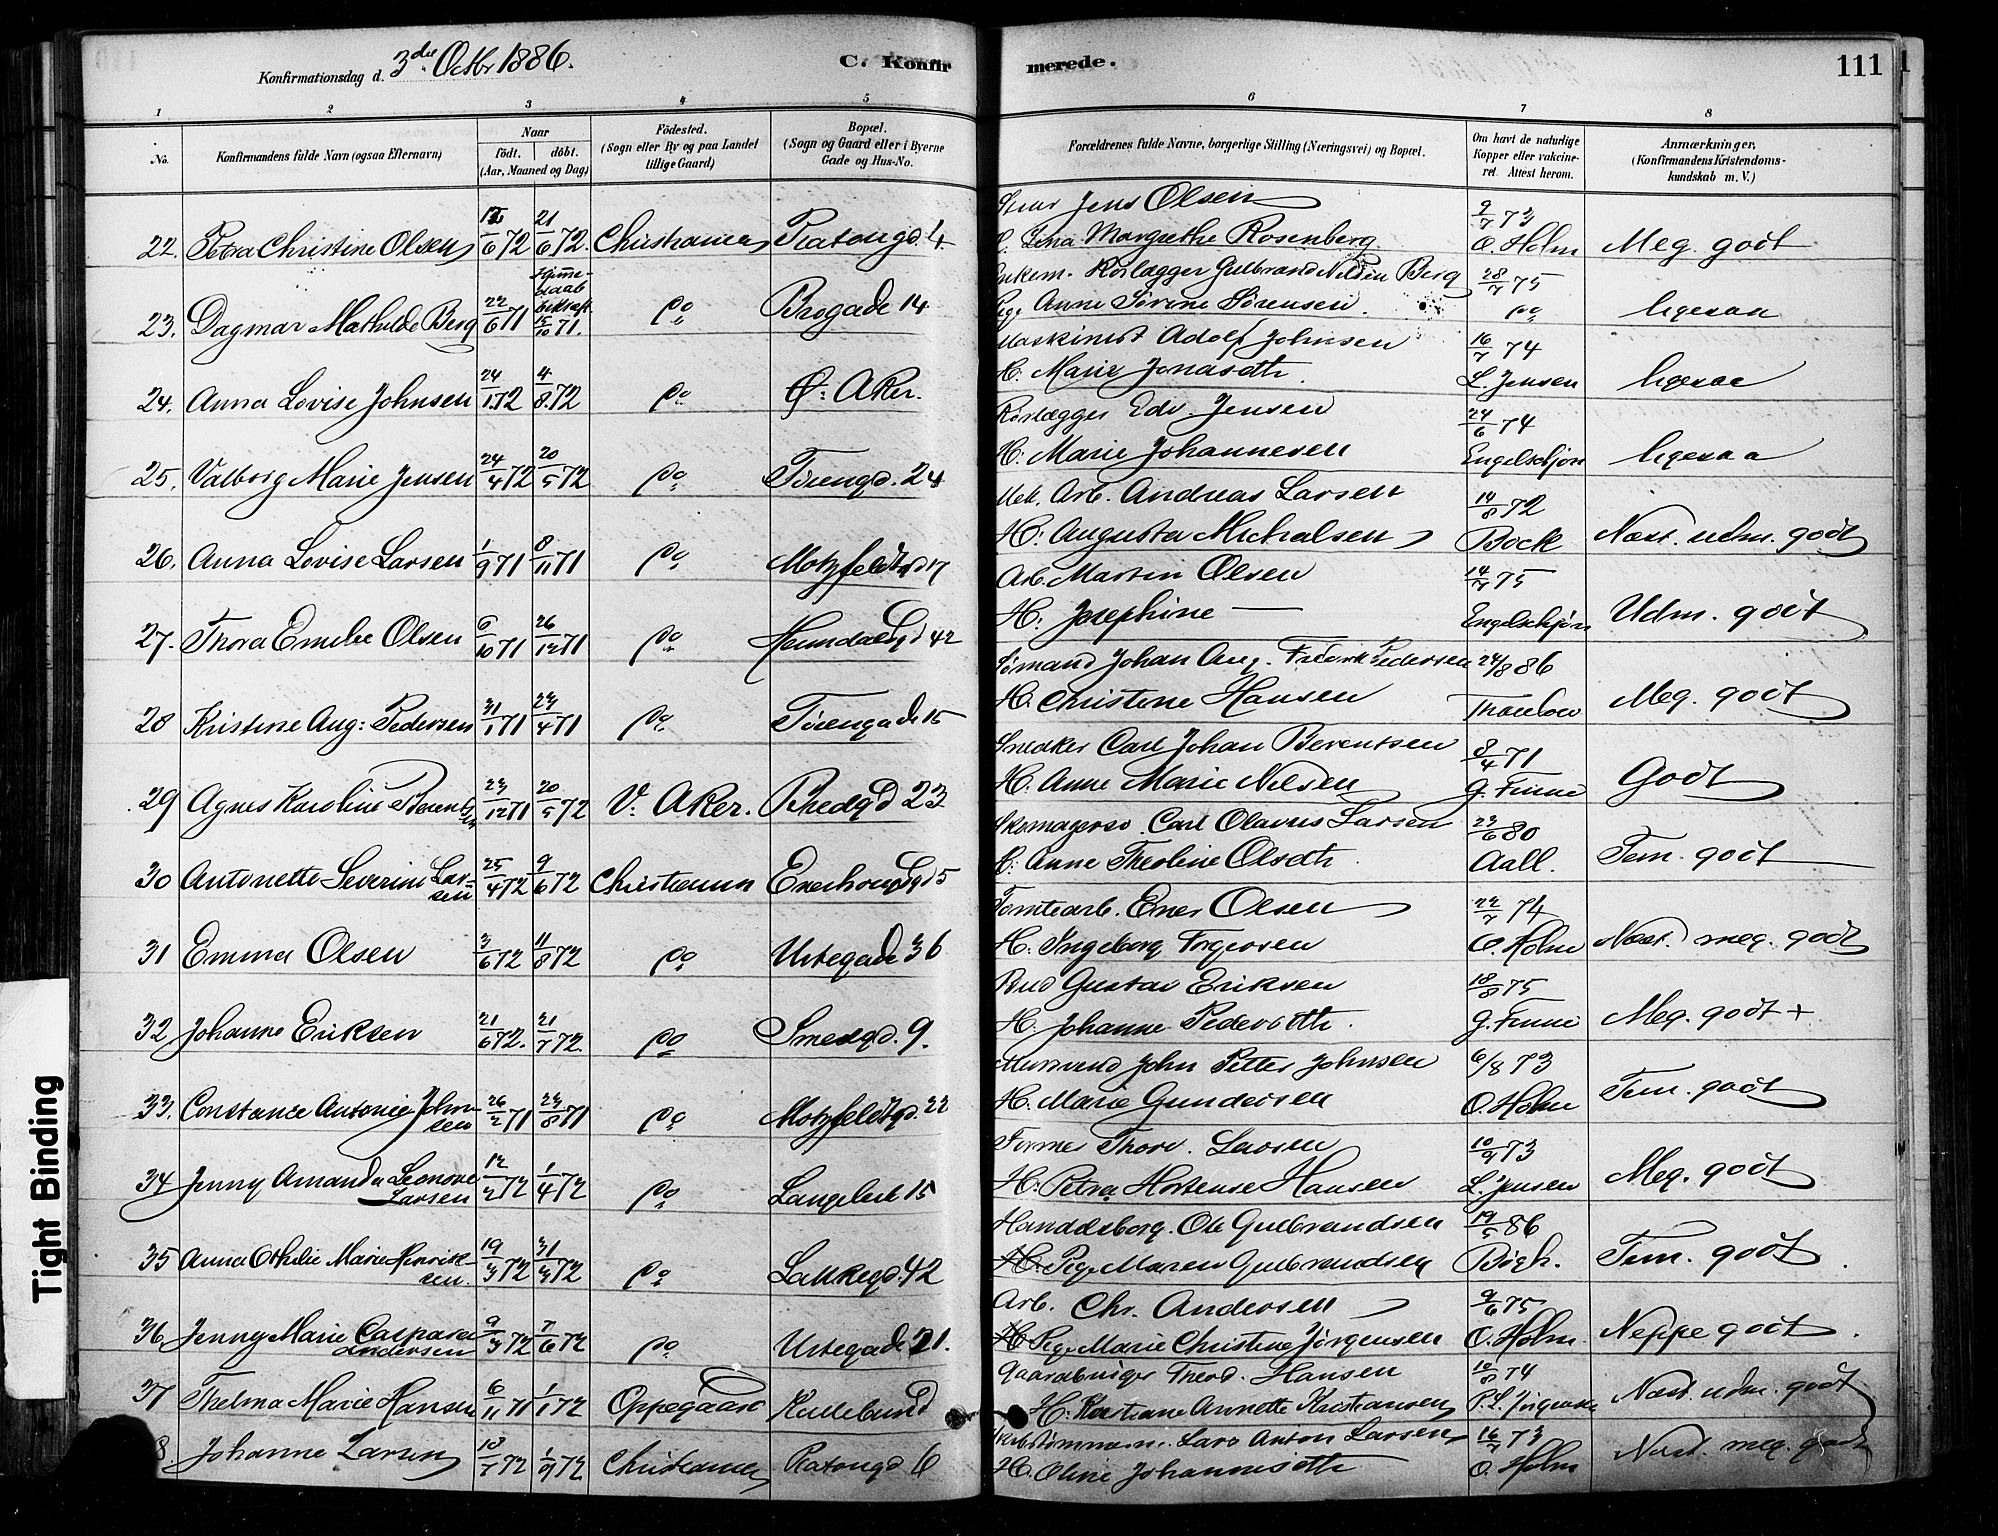 Konfirmationsdag d. 3die Octbr 1886.
C. Konfirmerede.
111
1 2 3 4 5 6 7 8
No.
Konfirmandens fulde Navn (ogsaa Efternavn)
Naar
födt. döbt.
(Aar, Maaned og Dag)
Födested.
(Sogn eller By og paa Landet
tillige Gaard)
Bopæl.
(Sogn og Gaard eller i Byerne
Gade og Hus-No.
Forældrenes fulde Navne, borgerlige Stilling (Næringsvei) og Bopæl.
Om havt de naturlige
Kopper eller vakcine-
ret. Attest herom.
Anmærkninger,
(Konfirmandens Kristendoms-
kundskab m. V.)
Jens Olsen 9/7 73
22. Petra Christine Olsen 6 72 21/6 72. Christiania 4 Margrethe Rosenberg O. Holm Meg. godt
Hjemme-
daab
Enkem. Rörlægger Gulbrand Nilsen Berg 28/7 75
23. Dagmar Mathilde Berg 22/6 71 10 71. do Brogade 14 Pige Anne Sörine Sörensen. do ligesaa
Maskinist Adolf Johnsen 16/7 74
24. Anna Lovise Johnsen 24/1 72 4/8 72 do Ö. Aker. H. Marie Jonasdtr. L. Jensen ligesaa
Rörlægger Edv. Jensen 24/6 74
25. Valborg Marie Jensen 24/4 72 20/5 72 do 24 H. Marie Johannesen Engelschjön ligesaa
Mek. Arb. Andreas Larsen 14/8 72
26. Anna Lovise Larsen 1/9 71 8/11 71 do Motzfeldtsgd 17 H. Augusta Michalsen Bock Næst. udm. godt
Arb. Martin Olsen 75
27. Thora Emilie Olsen 6/10 71 26/12 71 do 42 H. Josephine — Engelschjön Udm. godt
Sömand Johan Aug. Fredrik Pedersen 24/8 86
28 Kristine Aug: Pedersen 31/1 71 23/4 71 do 15 H. Christine Hansen Thaulow Meg. godt
Snedker Carl Johan Berentsen 8/4 71
29 Agnes Karoline Berent-
sen 23/12 71 20/5 72 V. Aker. 23 H. Anne Marie Nilsen G. Finne Godt
Skomagersv. Carl Olavus Larsen 23/6 80
30 Antonette Severine Lar-
sen 25/4 72 9/6 72 Christiania Enerhougsgd 5 H. Anne Theoline Olsdtr. Aall. Tem. godt
Tomtearb. Olsen 22/7 74
31 Emma Olsen 3/6 72 11/8 72 do Urtegade 36 H. Ingeborg Torgersen O. Holm Næst. meg. godt
Bud Gustav Eriksen 18/8 75
32 Johanne Eriksen 21/6 72. 21/7 72. do Smedgd. 9. H. Johanne Pedersdtr. G. Finne Meg. godt +
Murmand John Petter Johnsen 6/8 73
33. Constance Antonie John-
sen 26/2 71 23/8 71 do Motzfeldtsgd. 22 H. Marie Gundersen O. Holm Tem. godt
Former Thorv. Larsen 10/9 73
34 Jenny Amanda Leonore
Larsen 12/2 72 1/4 72 do Langeleik 15 H. Petra Hortense Hansen L. Jensen Meg. godt
Handelsborg. Ole Gulbrandsen 19/5 86
35 Anna Othilie Marie Henrik-
sen. 19/3 72 31/3 72 do Lakkegd. 42 H. Pige Maren Gulbrandsen Bögh. Tem. godt
Arb. Chr. Andersen 9/6 75
36 Jenny Marie Caspara
Andersen 9/3 72 7/6 72 do Urtegade 21. H. Pige Marie Christine Jörgensen O. Holm. Neppe godt
Gaardbruger Theod. Hansen 10/8 74
37 Thelma Marie Hansen 6/11 71 1/1 72 Oppegaard Kullebund H. Kristiane Annette Kristiansen P. L. Jörgensen Næst. udm. godt
Lars Anton Larsen 16/7 73
8. Johanne Larsen 72 1/9 72 Christiania 6 H. Oline Johannesdtr O. Holm Næst. meg. godt
Tight Binding